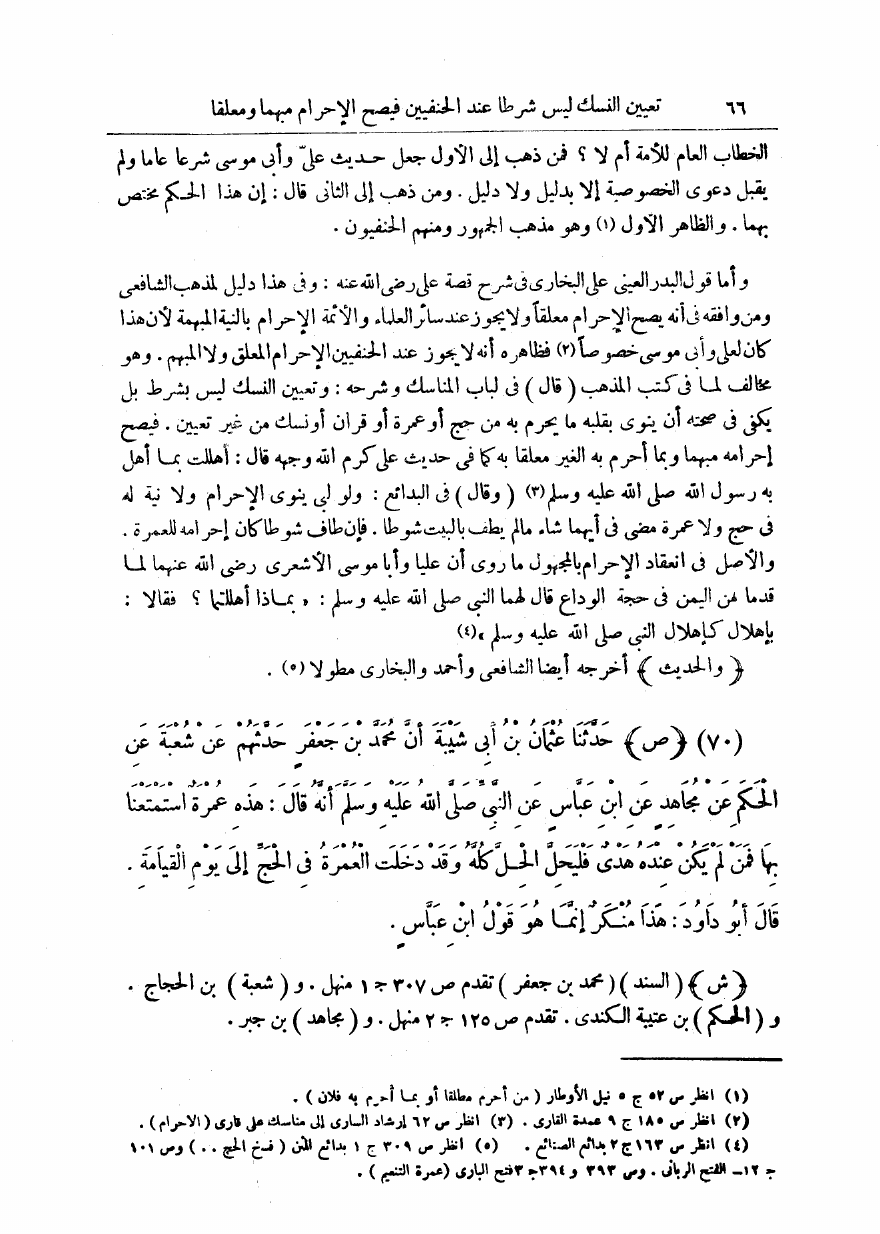 ٦٦ تعيين النسك ليس شرطا عند الحنفيين فيصح الإحرام مبهما ومعلقا
الخطاب العام للأمة أم لا ؟ فمن ذهب إلى الأول جعل حديث علىّ وأبى موسى شرعا عاما ولم
يقبل دعوى الخصوصية إلا بدليل ولا دليل . ومن ذهب إلى الثانى قال : إن هذا الحكم مختص
بهما . والظاهر الأول (١) وهو مذهب الجمهور ومنهم الحنفيون .
وأما قول البدر العينى على البخارى فى شرح قصة على رضى الله عنه : وفى هذا دليل لمذهب الشافعى
ومن وافقه فى أنه يصح الإحرام معلقاً ولا يجوز عند سائر العلماء والأئمة الإحرام بالنية المبهمة لأن هذا
كان لعلى وأبى موسى خصوصاً (٢) فظاهره أنه لا يجوز عند الحنفيين الإحرام المعلق ولا المبهم . وهو
مخالف لما فى كتب المذهب ( قال ) فى لباب المناسك وشرحه : وتعيين النسك ليس بشرط بل
يكفى فى صحته أن ينوى بقلبه ما يحرم به من حج أو عمرة أو قران أو نسك من غير تعيين . فيصح
إحرامه مبهما وبما أحرم به الغير معلقا به كما فى حديث على كرم الله وجهه قال : أهللت بما أهل
به رسول الله صلى الله عليه وسلم (٣) ( وقال ) فى البدائع : ولو لبى ينوى الإحرام ولا نية له
فى حج ولا عمرة مضى فى أيهما شاء مالم يطف بالبيت شوطا . فإن طاف شوطا كان إحرامه للعمرة .
والأصل فى انعقاد الإحرام بالمجهول ما روى أن عليا وأبا موسى الأشعرى رضى الله عنهما لما
قدما من اليمن فى حجة الوداع قال لهما النبى صلى الله عليه وسلم : « بماذا أهللتما ؟ فقالا :
بإهلال كإهلال النبى صلى الله عليه وسلم » (٤)
﴿ والحديث ﴾ أخرجه أيضا الشافعى وأحمد والبخارى مطولا (٥) .
(٧٠) ﴿ص﴾ حَدَّثَنَا عُثْمَانُ بْنُ أَبِى شَيْبَةَ أَنَّ مُحَمَّدَ بْنَ جَعْفَرٍ حَدَّثَهُمْ عَنْ شُعْبَةَ عَنِ
الْحَكَمِ عَنْ مُجَاهِدٍ عَنِ ابْنِ عَبَّاسٍ عَنِ النَّبِىِّ صَلَّى اللهُ عَلَيْهِ وَسَلَّمَ أَنَّهُ قَالَ : هٰذِهِ عُمْرَةٌ اسْتَمْتَعْنَا
بِهَا فَمَنْ لَمْ يَكُنْ عِنْدَهُ هَدْىٌ فَلْيَحِلَّ الْحِلَّ كُلَّهُ وَقَدْ دَخَلَتِ الْعُمْرَةُ فِى الْحَجِّ إِلَى يَوْمِ الْقِيَامَةِ .
قَالَ أَبُو دَاوُدَ : هٰذَا مُنْكَرٌ إِنَّمَا هُوَ قَوْلُ ابْنِ عَبَّاسٍ .
﴿ش﴾ ( السند ) ( محمد بن جعفر ) تقدم ص ٣٠٧ ج ١ منهل . و ( شعبة ) بن الحجاج .
و ( الحكم ) بن عتيبة الكندى . تقدم ص ١٢٥ ج ٢ منهل . و ( مجاهد ) بن جبر .
(١) انظر ص ٥٢ ج ٥ نيل الأوطار ( من أحرم مطلقا أو بما أحرم به فلان ) .
(٢) انظر ص ١٨٥ ج ٩ عمدة القارى . (٣) انظر ص ٦٢ إرشاد السارى إلى مناسك على قارى ( الاحرام ) .
(٤) انظر ص ١٦٣ ج ٢ بدائع الصنائع . (٥) انظر ص ٣٠٩ ج ١ بدائع المنن ( فسخ الحج . . ) وص ١٠١
ج ١٢ – الفتح الربانى . وص ٣٩٣ و ٣٩٤ ج ٣ فتح البارى ( عمرة التنعيم ) .